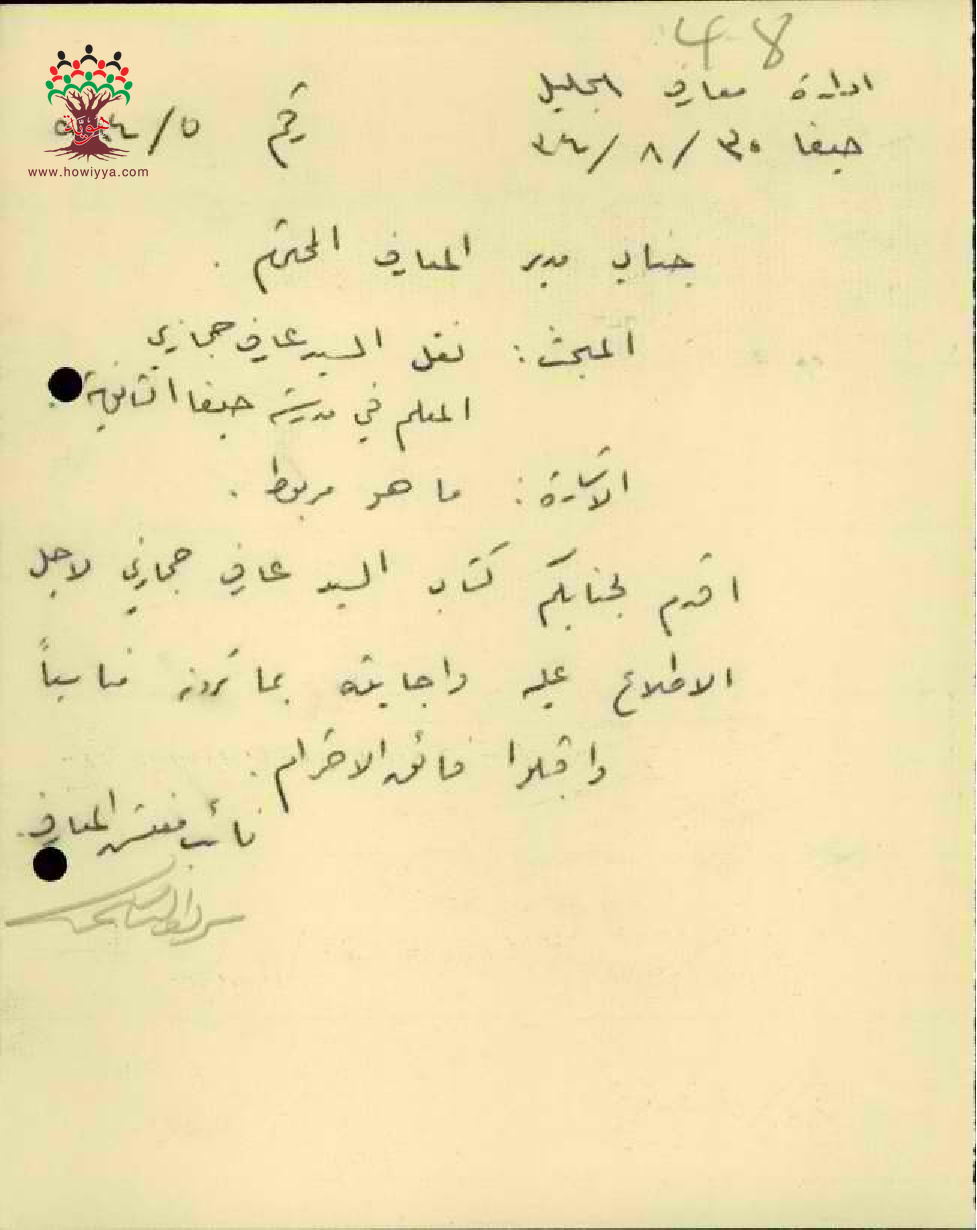 48
ادارة معارف الجليل
حيفا ٣٠ / ٨ /
رقم ٥ /
هويّة
www.howiyya.com
جناب مدير المعارف المحترم .
المبحث : نقل السيد عارف حجازي
المعلم في مدرسة حيفا الثانوية .
الاشارة : ما هو مربوط .
اقدم لجنابكم كتاب السيد عارف حجازي لاجل
الاطلاع عليه واجابته بما ترونه مناسباً
واقبلوا فائق الاحترام .
نائب مفتش المعارف .